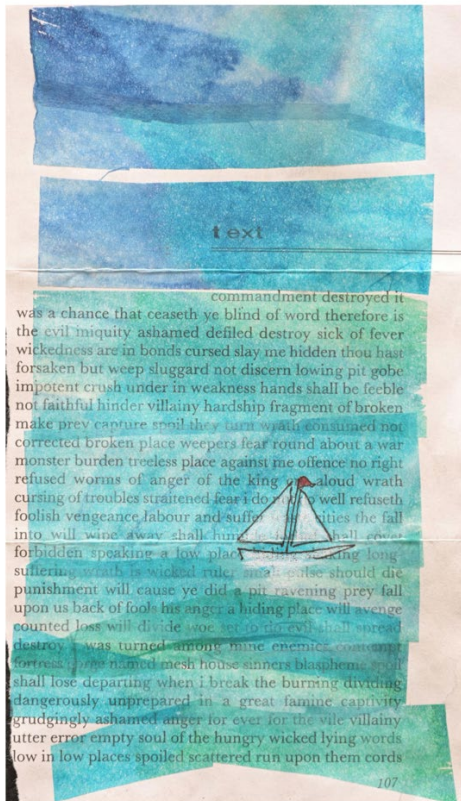 text
commandment destroyed it
was a chance that ceaseth ye blind of word therefore is
the evil iniquity ashamed defiled destroy sick of fever
wickedness are in bonds cursed slay me hidden thou hast
forsaken but weep sluggard not discern lowing pit gobe
impotent crush under in weakness hands shall be feeble
not faithful hinder villainy hardship fragment of broken
make prey capture spoil they turn wrath consumed not
corrected broken place weepers fear round about a war
monster burden treeless place against me offence no right
refused worms of anger of the king aloud wrath
cursing of troubles straitened fear i do well refuseth
foolish vengeance labour and the fall
into will wipe away shall cover
forbidden speaking a low long
suffering wrath is wicked ruler should die
punishment will cause ye did a pit ravening prey fall
upon us back of fools his anger a hiding place will avenge
counted loss will divide woe set to do evil shall spread
destroy was turned among mine enemies contempt
fortress named mesh house sinners blaspheme spoil
shall lose departing when i break the burning dividing
dangerously unprepared in a great famine captivity
grudgingly ashamed anger for ever for the vile villainy
utter error empty soul of the hungry wicked lying words
low in low places spoiled scattered run upon them cords
107